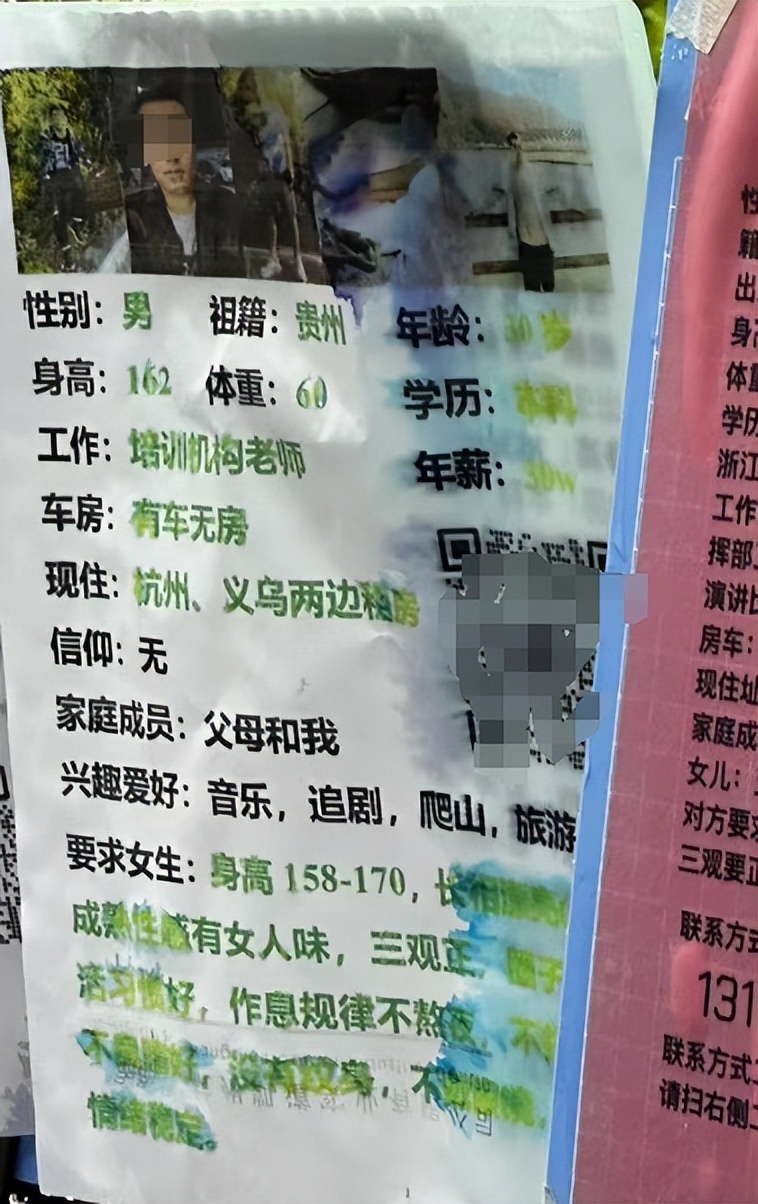 性别：男 祖籍：贵州 年龄：30岁
身高：162 体重：60 学历：本科
工作：培训机构老师 年薪：30w
车房：有车无房
现住：杭州、义乌两边租房
信仰：无
家庭成员：父母和我
兴趣爱好：音乐，追剧，爬山，旅游
要求女生：身高 158-170，长相
成熟性感有女人味，三观正，
活习惯好，作息规律不熬夜，不
不良嗜好，没有纹身，不
情绪稳定。
性
籍
出
身高
体重
学历
浙江
工作
挥部
演讲比
房车：
现住址
家庭成
女儿：
对方要求
三观要正
联系方式
131
联系方式二
请扫右侧二